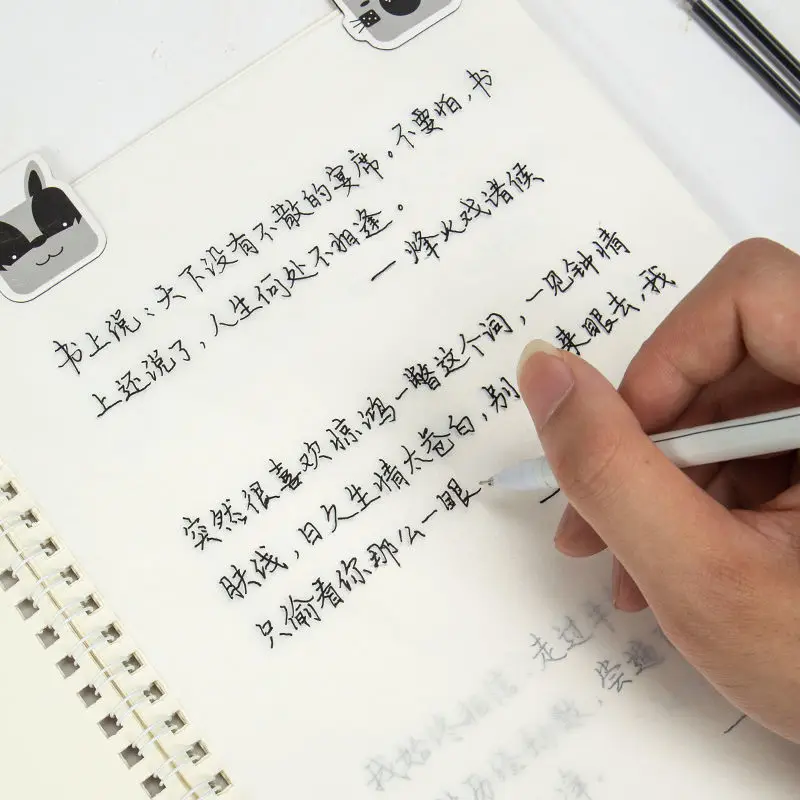 书上说、天下没有不散的宴席。不要怕,书
上还说了,人生何处不相逢。
—烽火戏诸候
突然很喜欢惊鸿一瞥这个词,一见钟情
肤浅,日久生情太苍白,别 来眼去,我
只偷看你那么一眼
我始终相信,走过平
历经劫数,尝遍
净.